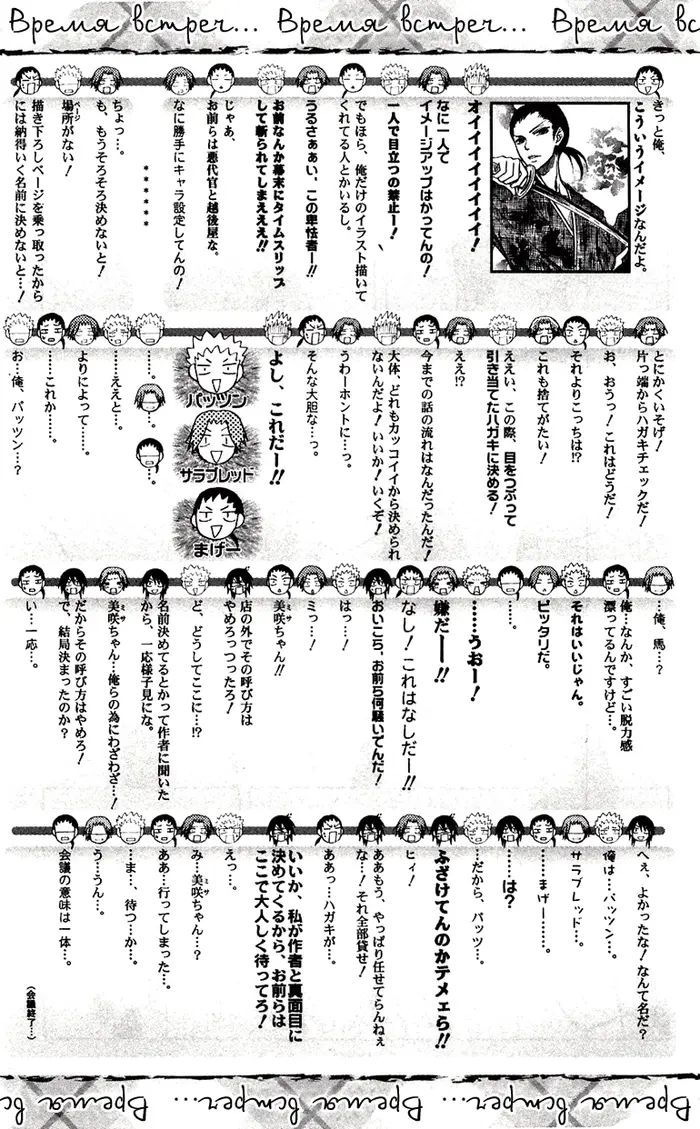 Время встреч... Время встреч... Время вс
きっと俺、
こういうイメージなんだよ。
オイイイイイイイイ！
なに一人で
イメージアップはかってんの！
一人で目立つの禁止ー！
でもほら、俺だけのイラスト描いて
くれてる人とかいるし。
うるさぁぁい、この卑怯者ー!!
お前なんか幕末にタイムスリップ
して斬られてしまええ!!
じゃあ、
お前らは悪代官と越後屋な。
なに勝手にキャラ設定してんの！
＊＊＊＊＊＊
ちょっ…。
も、もうそろそろ決めないと！
場所がない！
ページ
描き下ろしページを乗っ取ったから
には納得いく名前に決めないと…！
とにかくいそげ！
片っ端からハガキチェックだ！
お、おうっ！これはどうだ！
それよりこっちは!?
これも捨てがたい！
ええい、この際、目をつぶって
引き当てたハガキに決める！
ええ!?
今までの話の流れはなんだったんだ！
大体、どれもカッコイイから決められ
ないんだよ！いいか！いくぞ！
うわーホントに…っ。
そんな大胆な…っ。
よし、これだー!!
バッツン
サラブレッド
まげー
……。
……。
……。
……ええと…。
よりによって……。
……これか……。
お…俺、バッツン…？
…俺、馬…？
俺…なんか、すごい脱力感
漂ってるんですけど…。
それはいいじゃん。
ピッタリだ。
……。
……うおー！
嫌だ——!!
なし！これはなしだ——!!
おいこら、お前ら何騒いてんだ！
はっ…！
ミっ…！
美咲ちゃん!!
ミサ
店の外でその呼び方は
やめろっつったろ！
ど、どうしてここに…!?
名前決めてるとかって作者に聞いた
から、一応様子見にな。
美咲ちゃん…俺らの為にわざわざ…！
ミサ
だからその呼び方はやめろ！
で、結局決まったのか？
い…一応…。
へぇ、よかったな！なんて名だ？
俺は…バッツン…。
サラブレッド…。
……まげー……。
……は？
…だから、バッツ…。
ふざけてんのかテメェら!!
ヒィ！
ああもう、やっぱり任せてらんねぇ
な！それ全部貸せ！
ああっ…ハガキが…。
いいか、私が作者と真面目に
決めてくるから、お前らは
ここで大人しく待ってろ！
えっ…。
み…美咲ちゃん…？
ミサ
ああ…行ってしまった…。
…ま…、待つ…か…。
う…うん…。
会議の意味は一体…。
（会議終了…）
Время встреч... Время встреч... Время вс